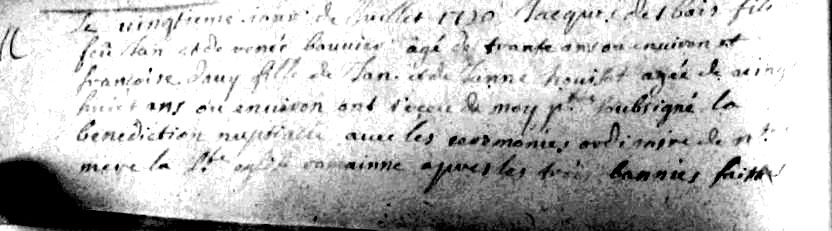 Le vingtieme jour de Juillet 1730 Jacques de bois fils
feu Jan et de renée bouvier âgé de trante ans ou environ et
françoise fille de Jan et de agée de vingt
huict ans ou environ ont receu de moy ptre subsigné la
benediction nuptialle avec les ceremonies ordinaire de ntre
mere la Ste eglise romainne apres les trois bannies faittes